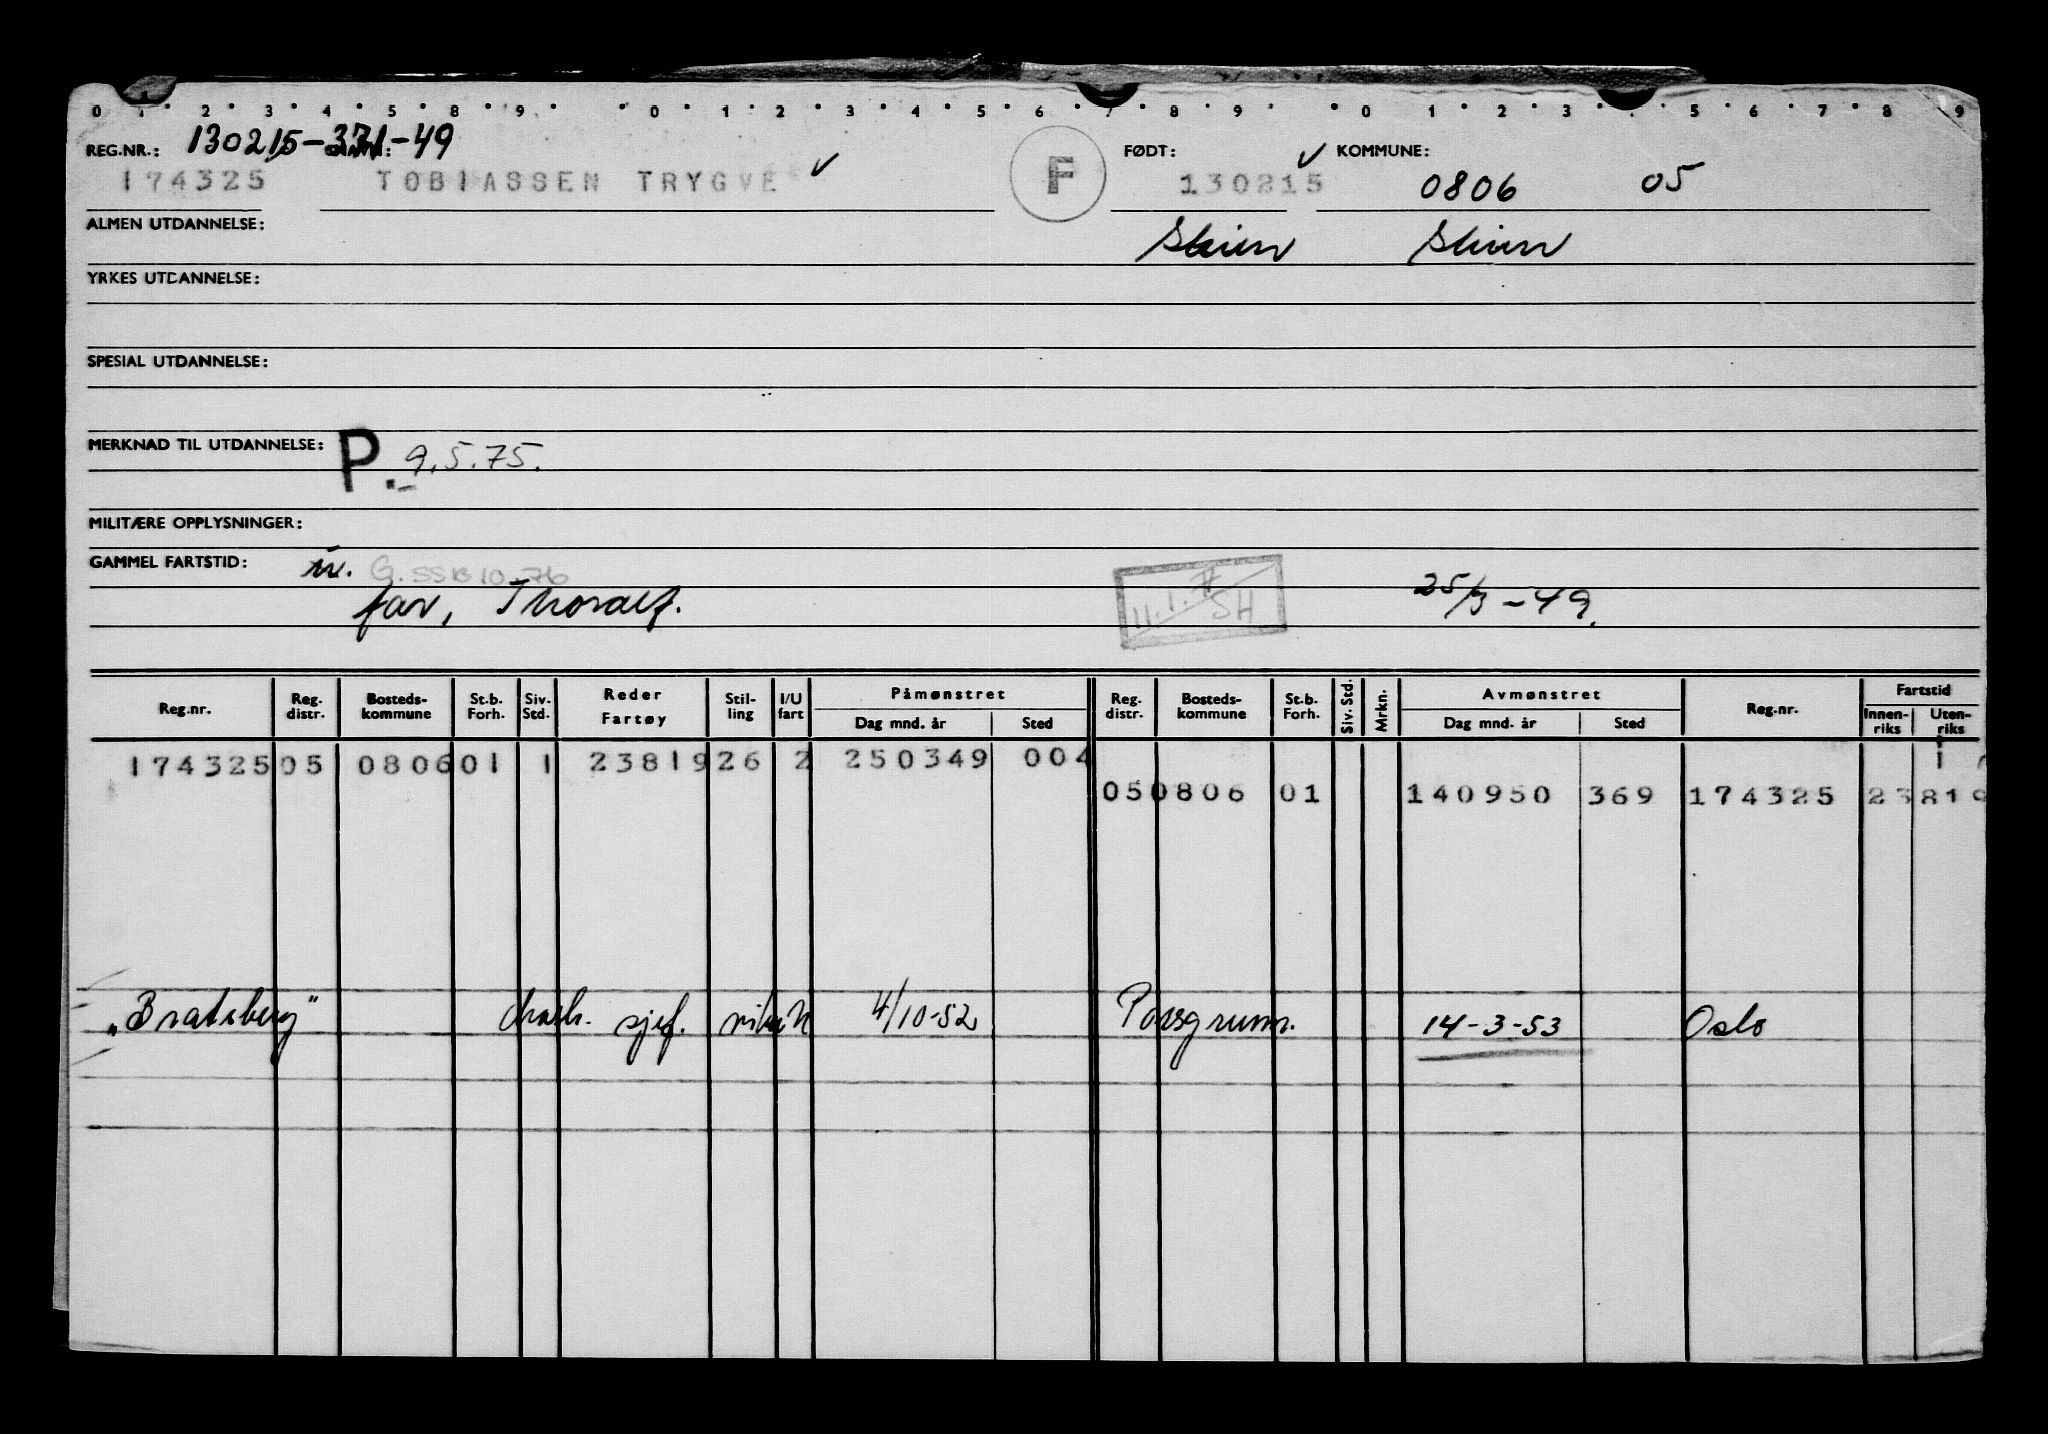 0 1 2 3 4 5 8 9 0 1 2 3 4 5 6 7 8 9 0 1 2 3 5 6 7 8 9
REG.NR.: 130215-371-49 FØDT: KOMMUNE:
174325 TOBIASSEN TRYGVE ✓ F 130215 ✓ 0806 05
ALMEN UTDANNELSE: Skien Skien
YRKES UTDANNELSE:
SPESIAL UTDANNELSE:
MERKNAD TIL UTDANNELSE: P. 9.5.75.
MILITÆRE OPPLYSNINGER:
GAMMEL FARTSTID: G. SSB 10-76
far, Thoralf. 11.1. SH 25/3-49.
Reg.nr. Reg. distr. Bosteds-kommune St.b. Forh. Siv. Std. Reder Fartøy Stil-ling I/U fart Påmønstret Dag mnd. år Sted Reg. distr. Bosteds-kommune St.b. Forh. Siv. Std. Mrkn. Avmønstret Dag mnd. år Sted Reg.nr. Fartstid Innen-riks Uten-riks
174325 05 0806 01 1 23819 26 2 250349 004 1
05 0806 01 140950 369 174325 23819
"Bratsberg" mask. sjef. 4/10-52 Porsgrunn. 14-3-53 Oslo